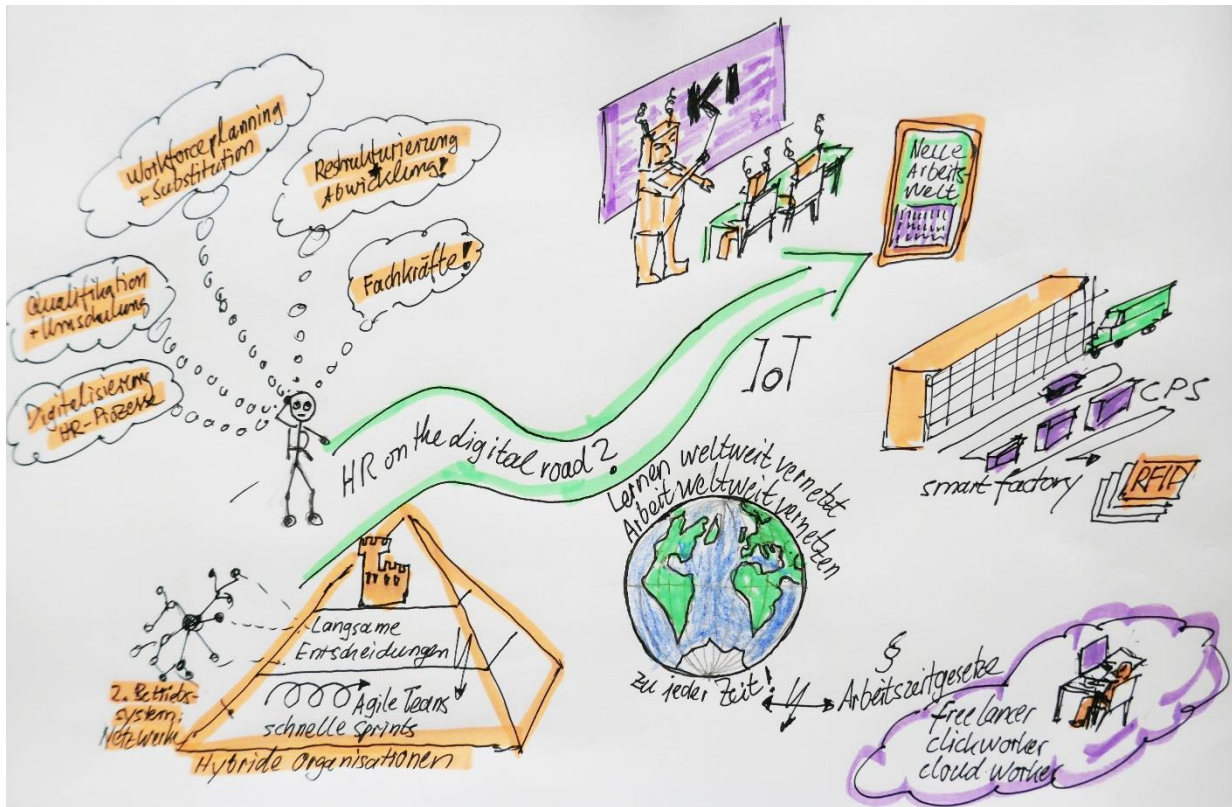 Workforceplanning
+ Substitution
Restrukturierung
Abwicklung!
Fachkräfte!
Qualifikation
+ Umschulung
Digitalisierung
HR-Prozesse
KI
Neue
Arbeits-
welt
HR on the digital road?
IoT
CPS
smart factory
RFID
Lernen weltweit vernetzt
Arbeit weltweit vernetzen
zu jeder Zeit!
§
Arbeitszeitgesetze
freelancer
clickworker
cloudworker
Langsame
Entscheidungen
Agile Teams
schnelle Sprints
2. Betriebs-
system:
Netzwerk
Hybride Organisationen